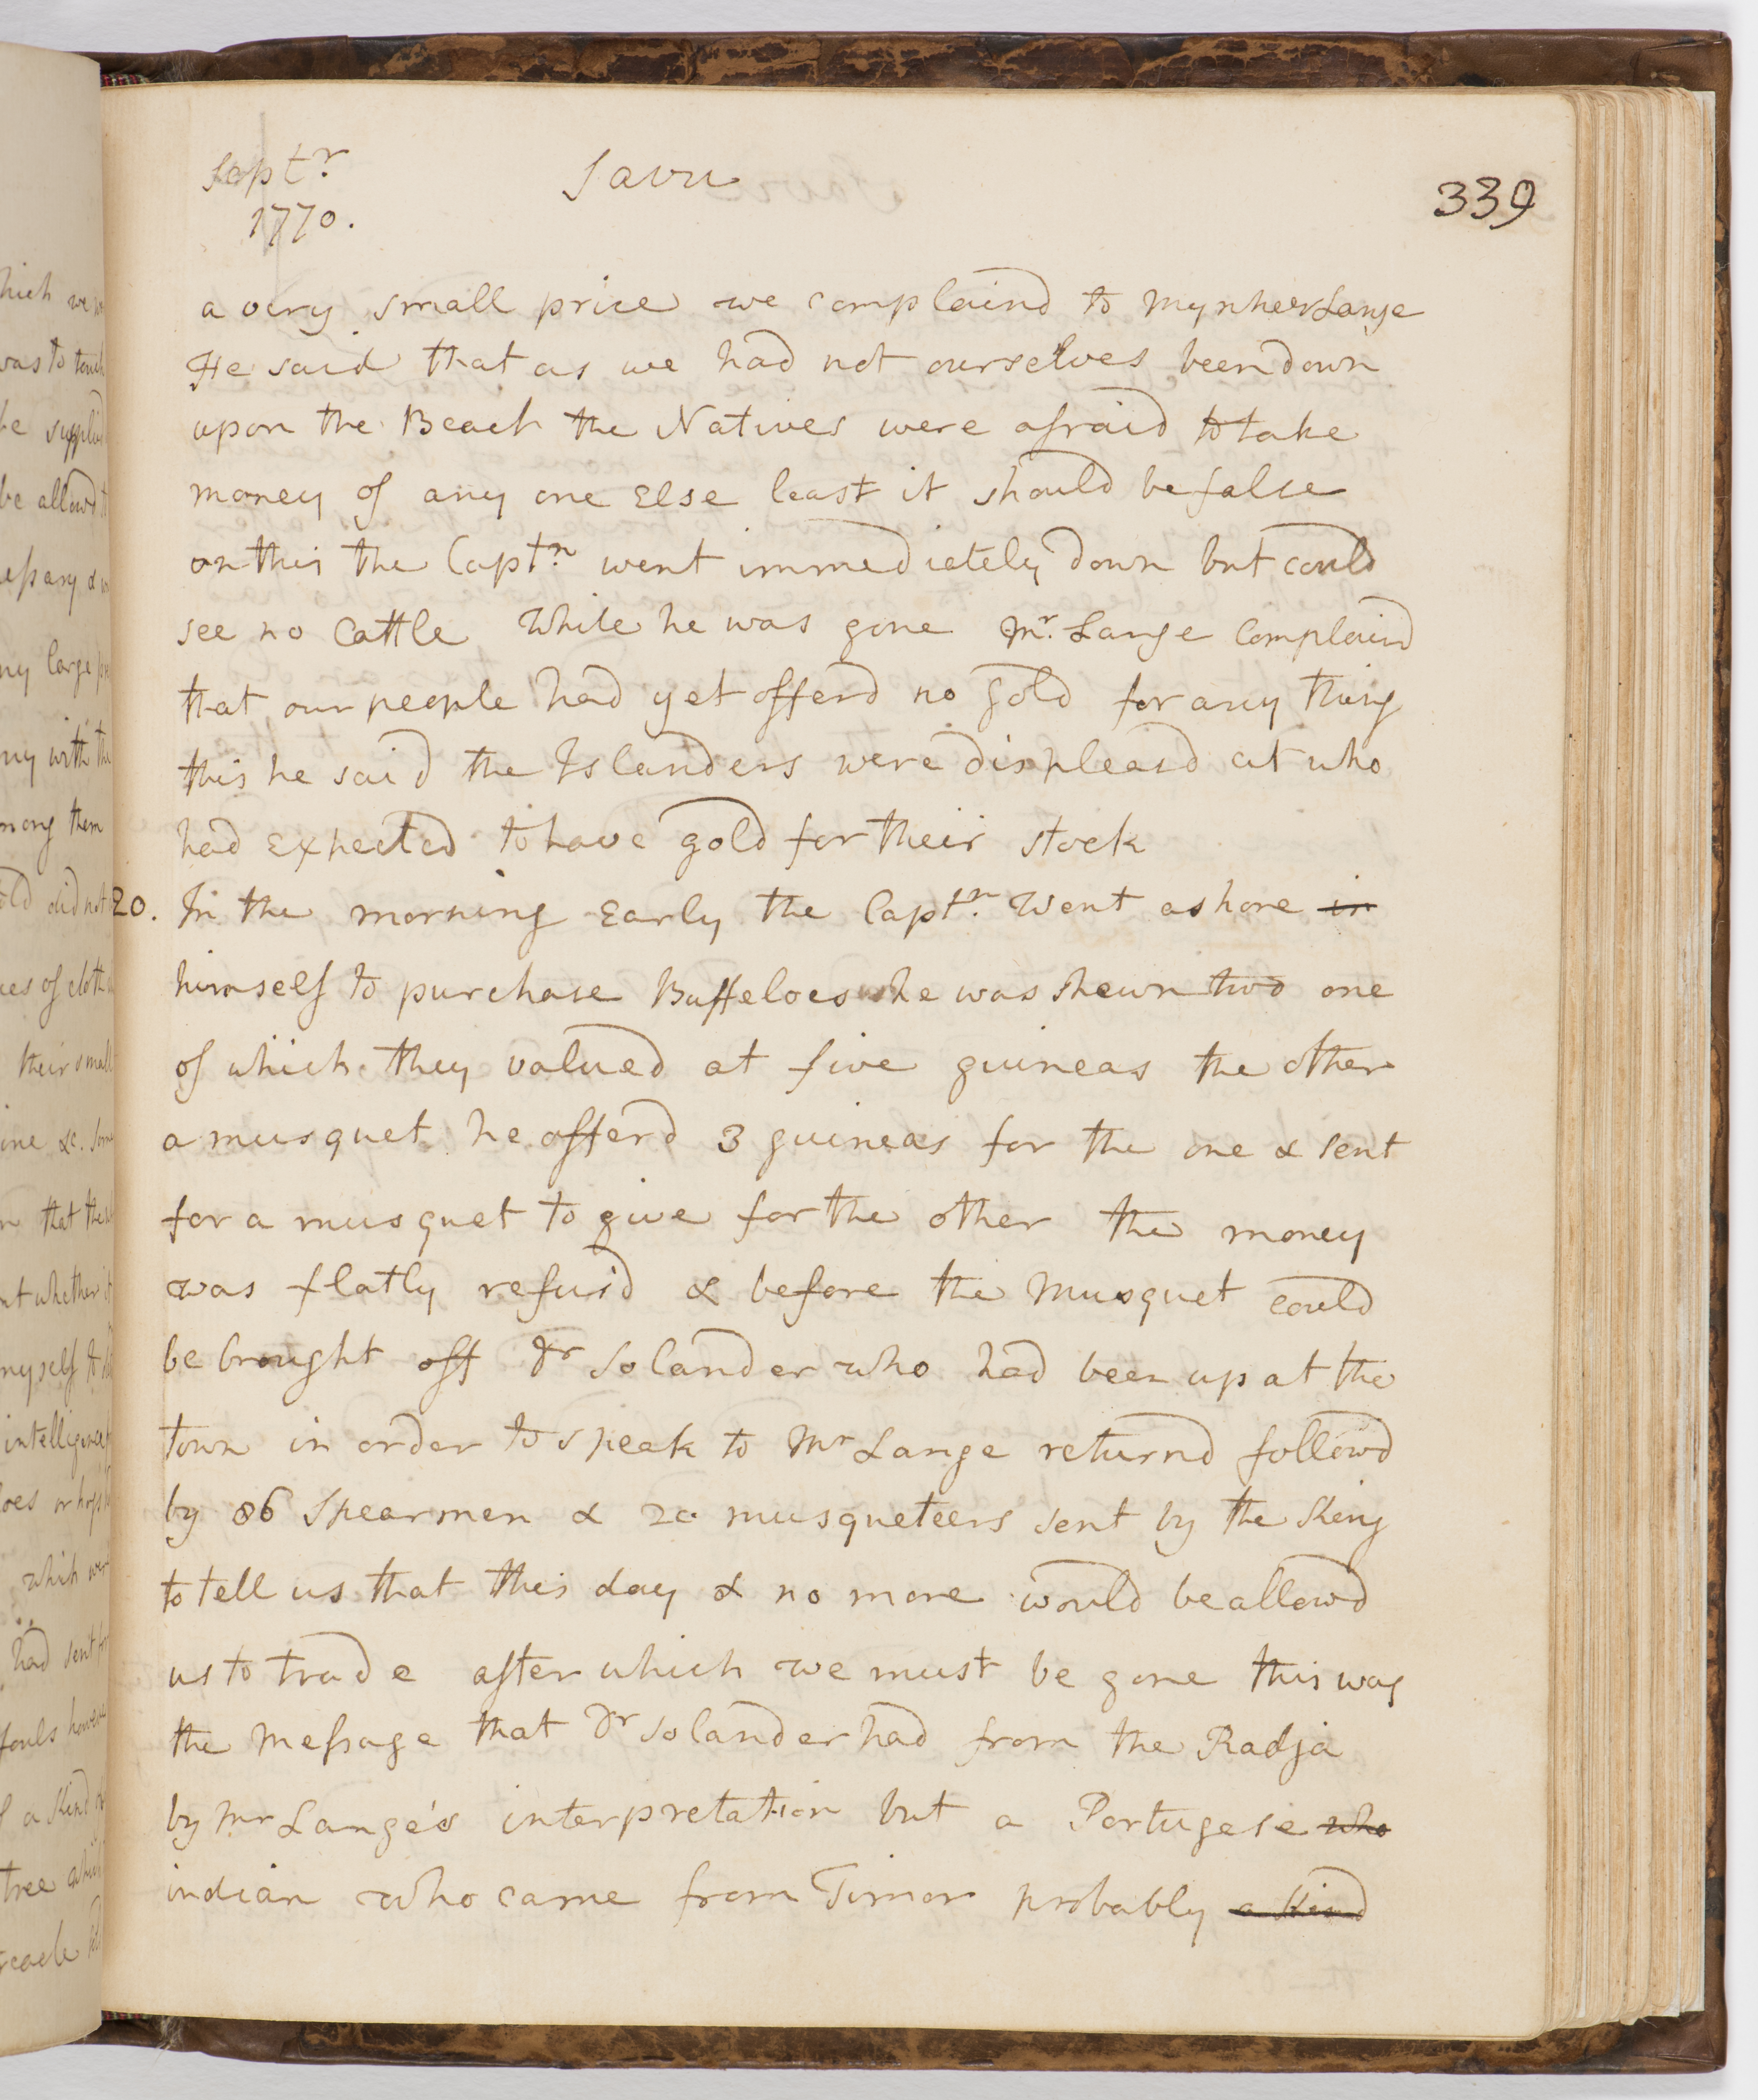 Septr.
1770.
Savu
339
a very small price we complaind to mynheer Lange
He said that as we had not ourselves been down
upon the Beach the Natives were afraid to take
money of any one Else least it should be false
on this the Captn. went immedietely down but could
see no Cattle While he was gone Mr. Lange Complaind
that our people had yet offerd no gold for any thing
this he said the Islanders were displeasd at who
had expected to have gold for their stock
20. In the morning Early the Captn. Went ashore in
himself to purchase Buffeloes he was shewn two one
of which they valued at five guineas the other
a musquet he offerd 3 guineas for the one & sent
for a musquet to give for the other the money
was flatly refus'd & before the Musquet could
be brought off Dr Solander who had been up at the
town in order to speak to Mr Lange returnd followd
by 86 Spearmen & 20 musqueteers sent by the King
to tell us that this day & no more would be allowd
us to trade after which we must be gone this was
the Message that Dr Solander had from the Radja
by Mr Lange's interpretation but a Portugese who
indian who came from Timor probably a kind
hich we
was to touch
be supplied
be allowd
essary &
ny large
ny with the
mong them
did not
ces of cloth
their small
ine &c. some
that the
whether it
myself to
intelligence
loes or hogs
which were
had sent for
fouls however
a kind
tree which